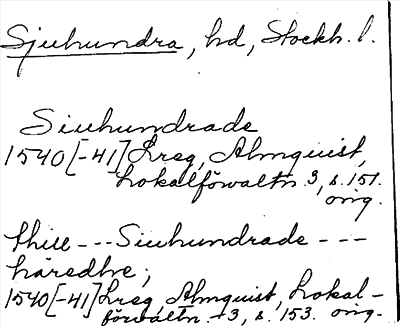 Sjuhundra, hd, Stockh. l.
Siuhundrade
1540 [-41] Lreg, Almquist,
Lokalförvaltn 3, s. 151.
orig.
thill --- Siuhundrade ---
häredhe;
1540 [-41] Lreg Almquist, Lokal-
förvaltn. 3, s. 153. orig.